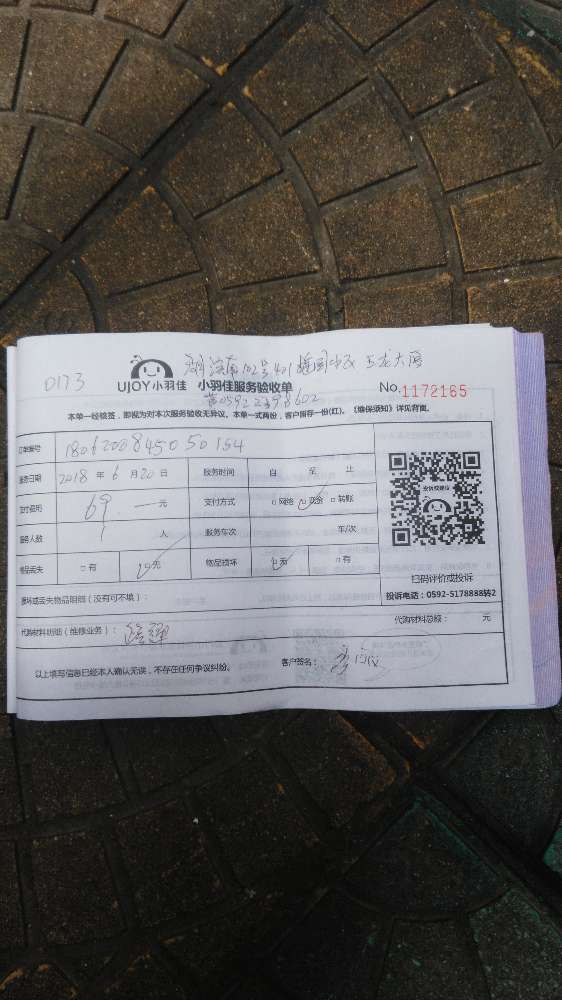 D173
UJOY小羽佳 小羽佳服务验收单 No.1172165
本单一经核签，即视为对本次服务验收无异议。本单一式两份，客户留存一份(红)。《维保须知》详见背面。
订单编号 1806200845050154
服务日期 2018 年 6 月 20 日 服务时间 自 至 止
支付费用 69 一元 支付方式 □网络 □现金 □转账
服务人数 1 人 服务车次 车/次
物品丢失 □有 □无 物品损坏 □无 □有
投诉或建议
扫码评价或投诉
投诉电话：0592-5178888转2
损坏或丢失物品明细（没有可不填）：
代购材料明细（维修业务）： 代购材料总额： 元
以上填写信息已经本人确认无误，不存在任何争议纠纷。 客户签名：